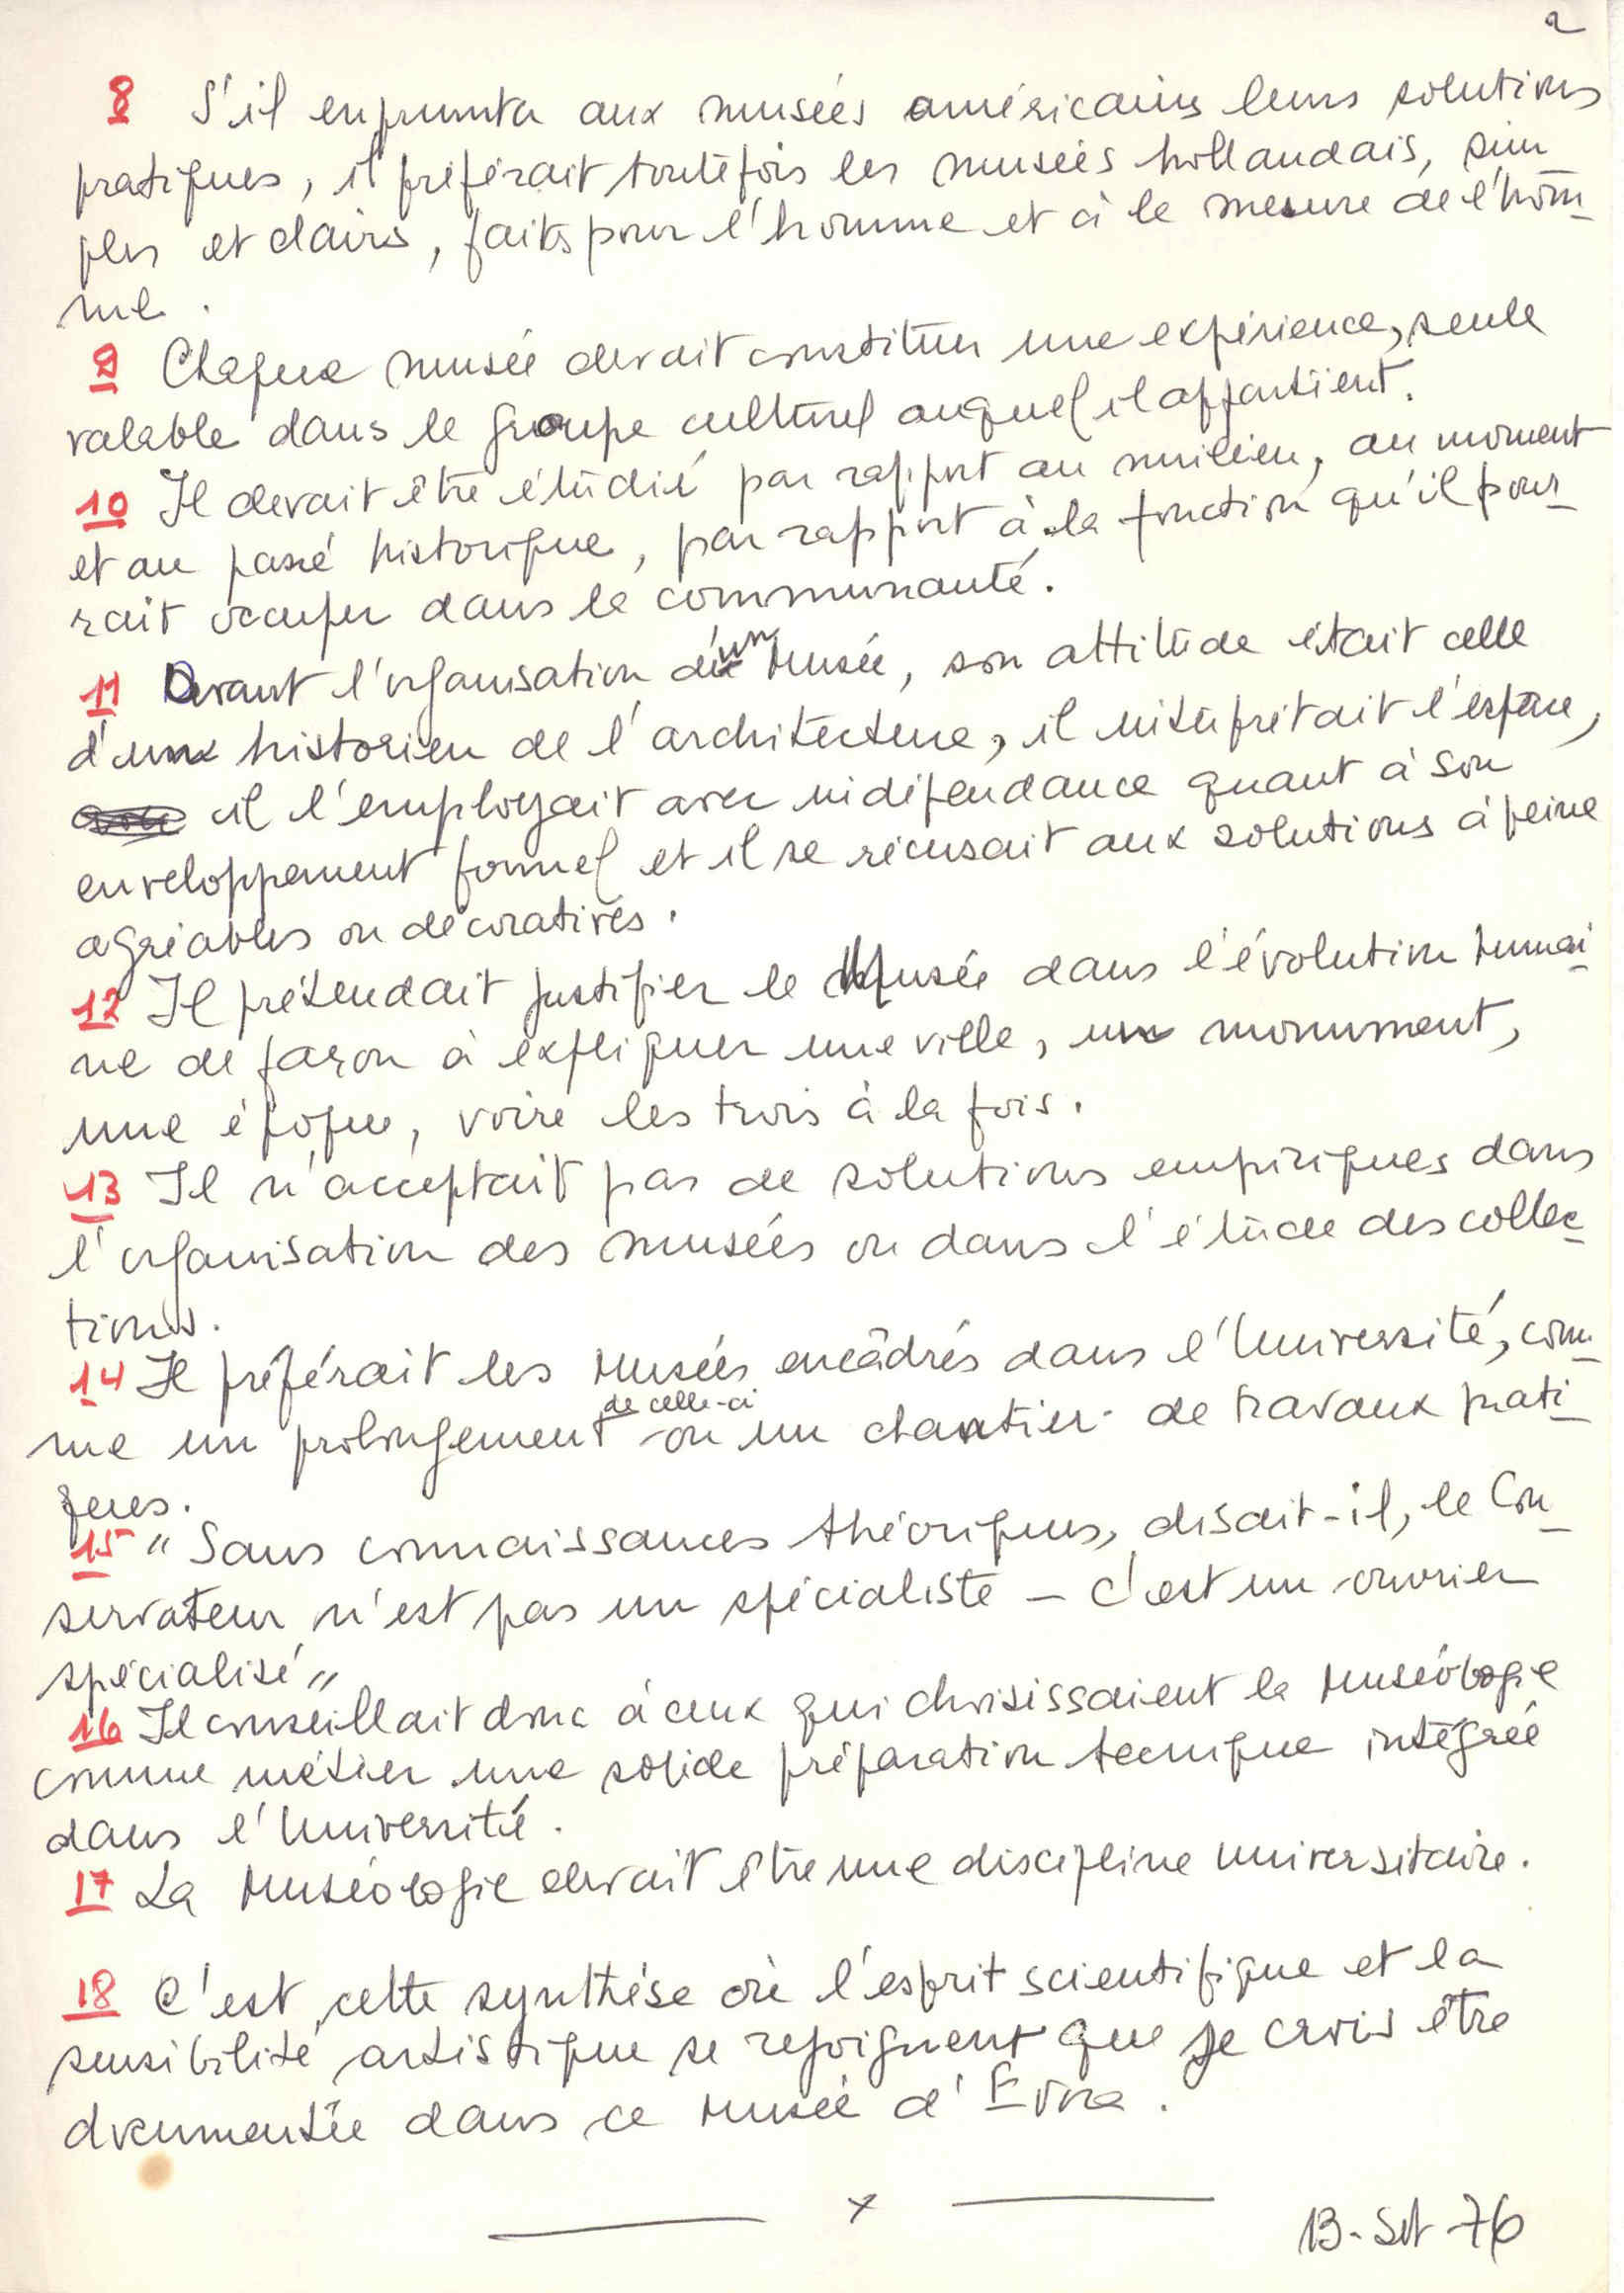 2
8 S'il enprunta aux musées américains leurs solutions
pratiques, il préférait toutefois les musées hollandais, sim-
ples et clairs, faits pour l'homme et à la mesure de l'hom-
me.
9 Chaque musée devait constituer une expérience, seule
valable dans le groupe culturel auquel il appartient.
10 Il devait être étudié par rapport au milieu, au moment
et au passé historique, par rapport à la fonction qu'il pour-
rait occuper dans la communauté.
11 Devant l'organisation d'un Musée, son attitude était celle
d'un historien de l'architecture, il interprétait l'espace,
il l'employait avec indépendance quant à son
enveloppement formel et il se récusait aux solutions à peine
agréables ou décoratives.
12 Il prétendait justifier le Musée dans l'évolution humai-
ne de façon à expliquer une ville, un monument,
une époque, voire les trois à la fois.
13 Il n'acceptait pas de solutions empiriques dans
l'organisation des musées ou dans l'étude des collec-
tions.
14 Il préférait les Musées encâdrés dans l'Université, com-
me un prolongement de celle-ci ou un chantier de travaux prati-
ques.
15 "Sans connaissances théoriques, disait-il, le Con-
servateur n'est pas un spécialiste - c'est un ouvrier
spécialisé"
16 Il conseillait donc à ceux qui choisissaient la Muséologie
comme métier une solide préparation tecnique intégrée
dans l'Université.
17 La Muséologie devait être une discipline universitaire.
18 C'est cette synthése où l'esprit scientifique et la
sensibilité artistique se rejoignent que je crois être
documentée dans ce Musée d'Evora.
x
13-Set-76